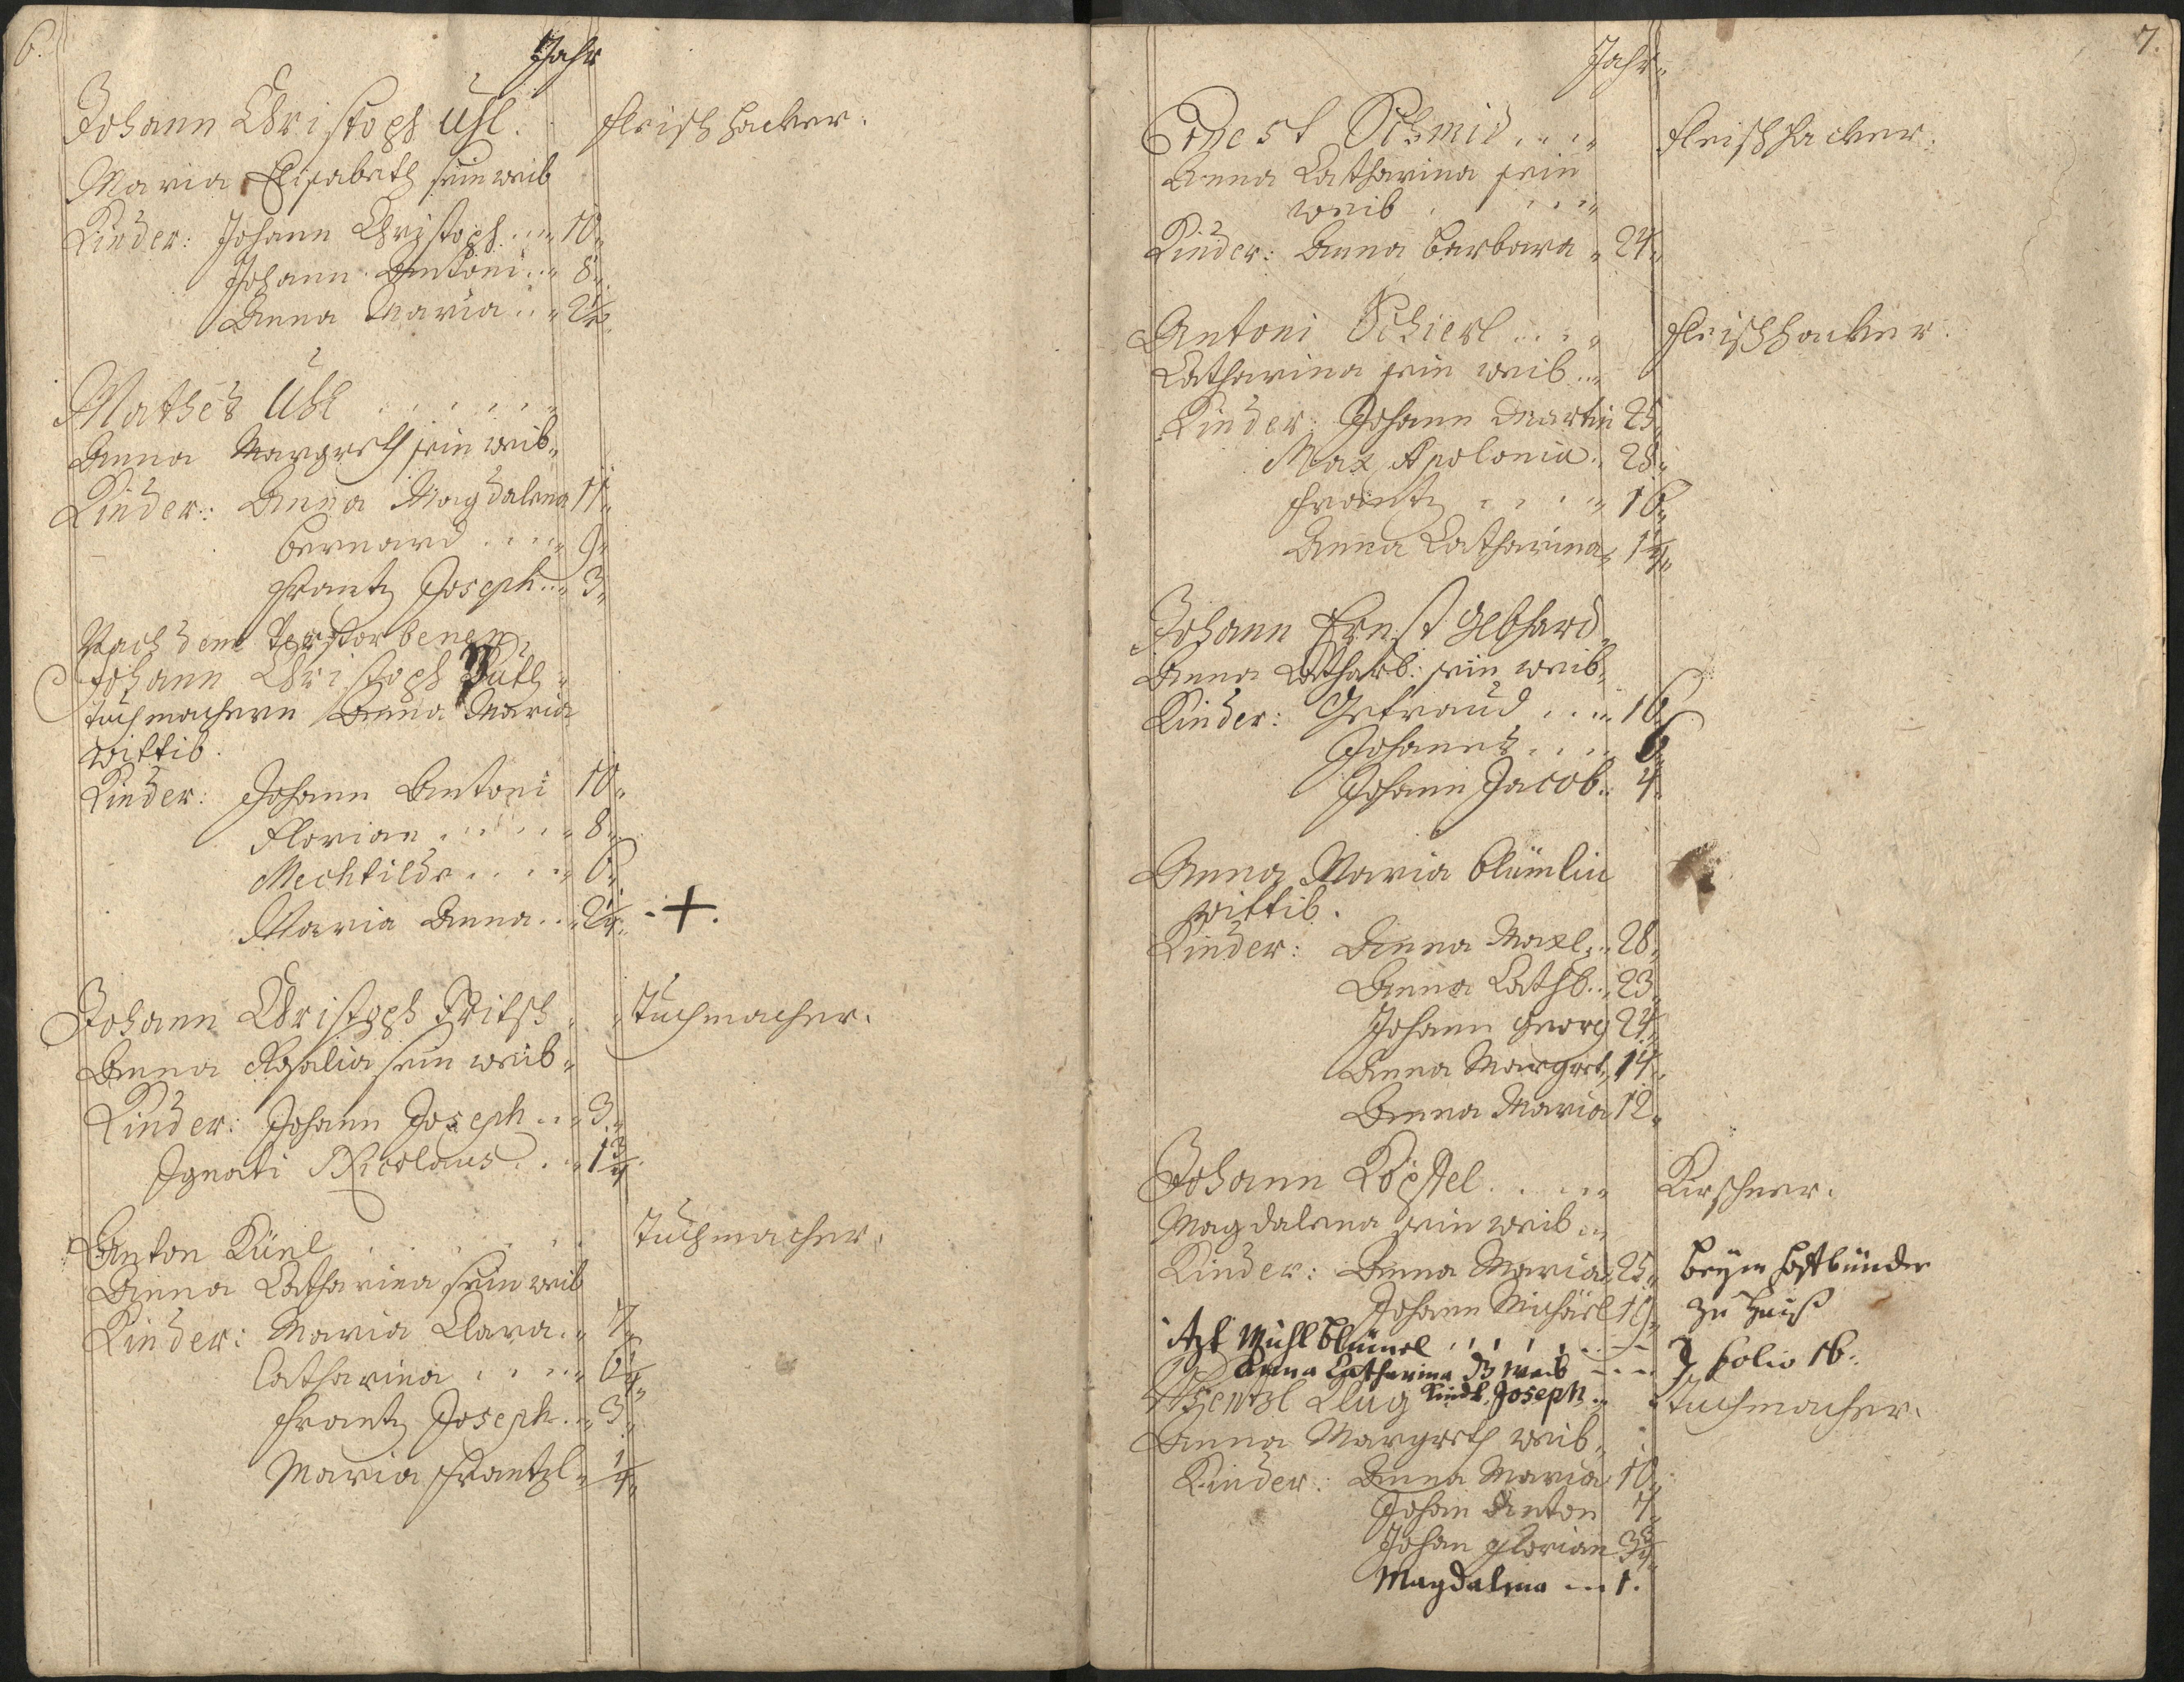 6.
Jahr
Johann Christoph Uhl. fleischhacker.
Maria Elisabeth sein weib
Kinder: Johann Christoph .... 10
Johann Antoni ... 8
Anna Maria ... 2 1/2
Mathes Uhl ......
Anna Margreth sein weib
Kinder: Anna Magdalena 11
Bernard .... 9
Frantz Joseph ... 3
Nach dem Verstorbenen
Johann Christoph
tuchmachern Anna Maria
wittib.
Kinder: Johann Antoni 10
Florian ..... 8
Mechtildr .... 6
Maria Anna .. 2 1/4 . +.
Johann Christoph Fritsch Tuchmacher.
Anna Rosalia sein weib
Kinder: Johann Joseph .. 3
Ignati Nicolaus ... 1 3/4
Anton Künl ..... Tuchmacher.
Anna Catharina sein weib
Kinder: Maria Clara .. 7
Catharina .... 6 1/4
Frantz Joseph .. 3
Maria Frantzl 1/4
7.
Jahr
Ernest Schmid .... fleischhacker.
Anna Catharina sein
weib ....
Kinder: Anna Barbara 24
Antoni Schierl .... fleischhacker.
Catharina sein weib ..
Kinder: Johann Martin 25
Max Apolonia .. 28
Frantz .... 16
Anna Catharina 14
Johann Ernst Gebhard
Anna Catharb: sein weib
Kinder: Getraud .... 16
Johannes .... 6
Johann Jacob .. 4
Anna Maria Blümlin
wittib.
Kinder: Anna Maxl .. 28
Anna Cathb .. 23
Johann Georg 24
Anna Margret 14
Anna Maria 12
Johann Köpstel ..... Kirschner.
Magdalena sein weib ..
Kinder: Anna Maria 25 beym
Johann Michäel 19 zu Hauß
Blümel ......
Anna Catharina weib ... folio 16.
Wentzl Klug Kindt Joseph .. Tuchmacher.
Anna Margreth weib
Kinder: Anna Maria 10
Johan Anton 7
Johan Florian 3 3/4
Magdalena ... 1.